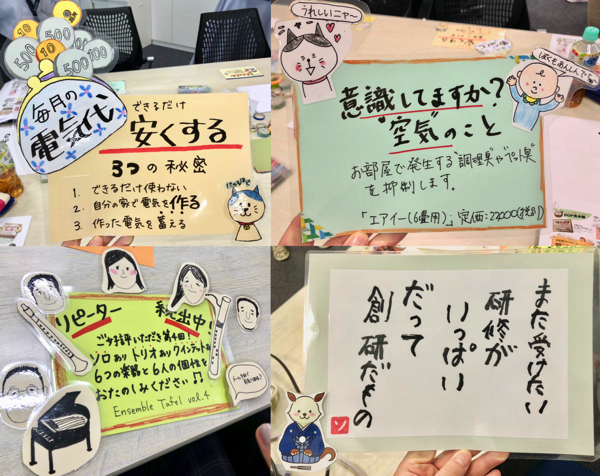 500
10
500
10
100
500
100
毎月の
電気代、
できるだけ
安くする
3つの秘密
1. できるだけ使わない
2. 自分の家で電気を作る
3. 作った電気を蓄える
うれしいニャ〜
ニャー
ぼくもあんしんでちゅ
意識してますか?
"空気"のこと
お部屋で発生する"調理臭"や"ペット臭"
を抑制します。
「エアイー(6畳用)」定価:23000(税別)
リピーター
続出中!
ご好評いただき第4回!
ソロあり トリオあり クインテットあり
6つの楽器と6人の個性を
おたのしみください♫
Ensemble Tafel vol.4
また受けたい
研修が
いっぱい
だって
創研だもの
ソ